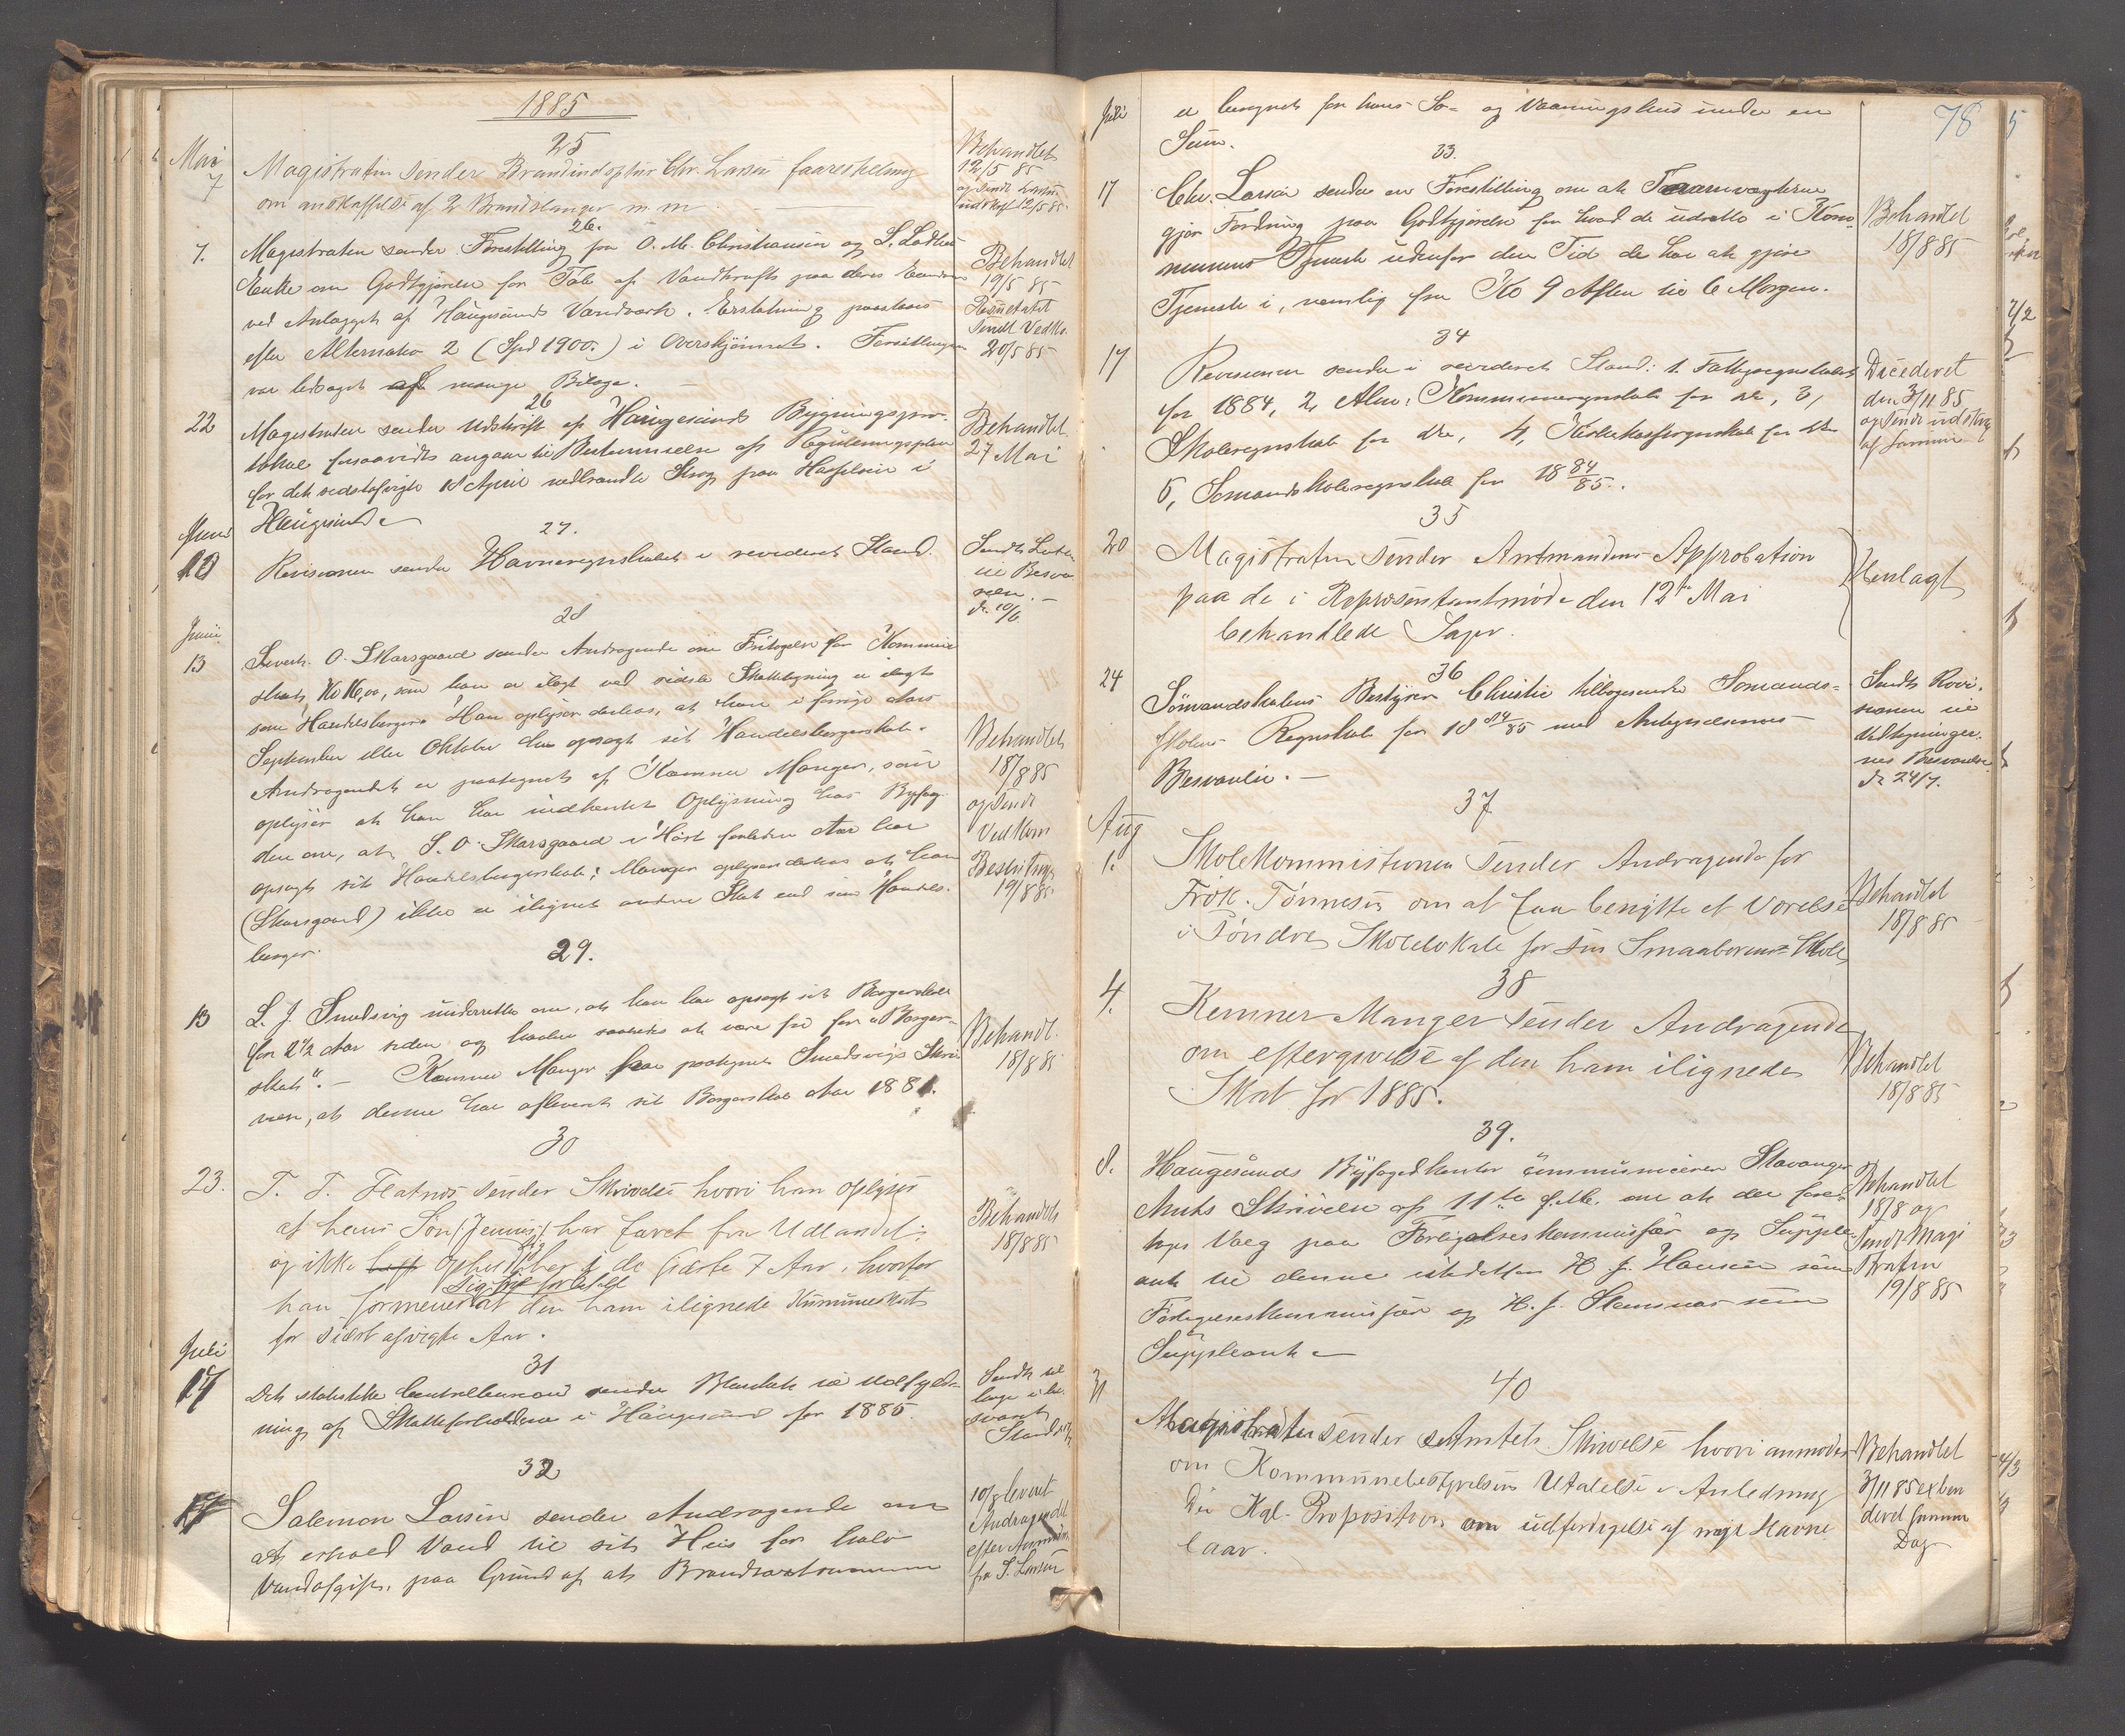 1885
25
Mai
7
Magistraten sender Brandindspktør Chr. Larsen
om anskaffelse af 2 Brandslanger m m
Behandlet
12/5 85
og sendt Larsen
udskrift 12/5 85
26.
7.
Magistraten sender Forestilling fra O. M. Christiansen og L.
Enke om Godtgjørelse for Tab af Vandkraft paa deres
ved Anlægget af Haugesunds Vandværk. Erstatning paastaaes
efter Alternativ 2 (Spd 1900.) i Overskjønnet. Forestillingen
var ledsaget af mange Bilage.
Behandlet
19/5 85
Resultatet
sendt Vedk.
20/5 85
26
22
Magistraten sender Udskrift af Haugesunds Bygningspro-
tokol forsaavidt angaar til Bestemmelse af Reguleringsplan
for det sidstafvigte 18 April nedbrændte Strøg paa Hasseløen i
Haugesund
Behandlet
27 Mai
Juni
10
27.
Revisionen sender Havneregnskabet i revideret Stand.
Sendt
til Besva-
relse.
d. 10/6
28
Juni
13
Sivert O. Skarsgaard sender Andragende om Fritagelse for Kommune
skat, som han er ilagt ved sidste Skatteligning
som Handelsborger. Han oplyser derhos, at han i forrige Aars
September eller Oktober har opsagt sit Handelsborgerskab.
Andragendet er paategnet af Kæmner Manger, som
oplyser at han har indhentet Oplysning hos Byfog-
den om, at S. O. Skarsgaard i Høst forleden Aar har
opsagt sit Handelsborgerskab; Manger oplyser derhos at han
(Skarsgaard) ikke er ilignet anden Skat end som Handels-
borger.
Behandlet
18/8 85
og sendt
Vedkom
19/8 85
29.
13
L. J. Smedsvig underretter om, at han har opsagt sit Borgerskab
for 2 1/2 Aar siden og haaber saaledes at være fri for "Borger-
skat". – Kæmner Manger har paategnet Smedsvigs Skri-
velse, at denne har afleveret sit Borgerskab Aar 1881.
Behandl.
18/8 85
30
23.
T. T. Flatnes sender Skrivelse hvori han oplyser
at hans Søn (Jennes) har faret fra Udlandet
og ikke opholdt sig her i de sidste 7 Aar, hvorfor
han formener sig fri for at den ham ilignede Kommuneskat
for sidst afvigte Aar.
Behandlet
18/8 85
Juli
17
31
Det statistiske Centralbureau sender Blanket til Udfyld-
ning af Skatteforholdene i Haugesund for 1885
Sendt til
bage i be-
svaret
Stand
32
17
Salemon Larsen sender Andragende om
at erhold Vand til sit Hus for halv
Vandafgift, paa Grund af at Brandvæstommen
10/8 levert
Andragendet
efter Anmodn
fra S. Larsen
78
Juli
er beregnet for hans So- og Vaaningshus under en
Sum.
33.
17
Chr. Larsen sender en Forestilling om at Taarnvægterne
gjør Fordring paa Godtgjørelse for hvad de udrette i Kom-
munens Tjeneste udenfor den Tid de har at gjøre
Tjeneste i, nemlig fra Kl 9 Aften til 6 Morgen.
Behandlet
18/8 85
34
17
Revisionen sender i revideret Stand: 1. Fattigregnskabet
for 1884, 2, Alm: Kommuneregnskab for do, 3,
Skoleregnskab for do, 4, Kirkekasseregnskab for do
5, Sømandsskoleregnskab for 18 84/85.
Decideret
den 3/11 85
og sendt udskrift
af samme
35
20
Magistraten sender Amtmandens Approbation
paa de i Repræsentantmøde den 12te Mai
behandlede Sager.
Henlagt
36
24
Sømandsskolens Bestyrer Christie tilbagesender Sømands-
skolens Regnskab for 18 84/85 med Antegnelsernes
Besvarelse. –
Sendt Revi-
sionen til
Antegninger-
nes Besvarelse
d. 24/7.
37
Aug
1.
Skolekommissionen sender Andragende for
Frøk. Tønnesen om at faa benytte et Værelse
i Søndre Skolelokale for sin Smaabørns Skole
Behandlet
18/8 85
38
4.
Kemner Manger sender Andragende
om eftergivelse af den ham ilignede
Skat for 1885.
Behandlet
18/8 85
39.
8.
Haugesunds Byfogedkontor communicerer Stavanger
Amts Skrivelse af 11te f.M. om at der fore-
tages Valg paa Forligelseskommissær og Supple-
ant til denne istedetfor H. J. Hansen som
Forligelseskommissær og H. J. Stensnæs som
Suppleant
Behandlet
18/8 og
sendt Magi
straten
19/8 85
40
31
Magistraten sender Amtets Skrivelse hvori anmodes
om Kommunebestyrelsens Udtalelse i Anledning
den Kgl. Proposition om udfærdigelse af nye Havne
laav.
Behandlet
3/11 85
deret samme
Dag